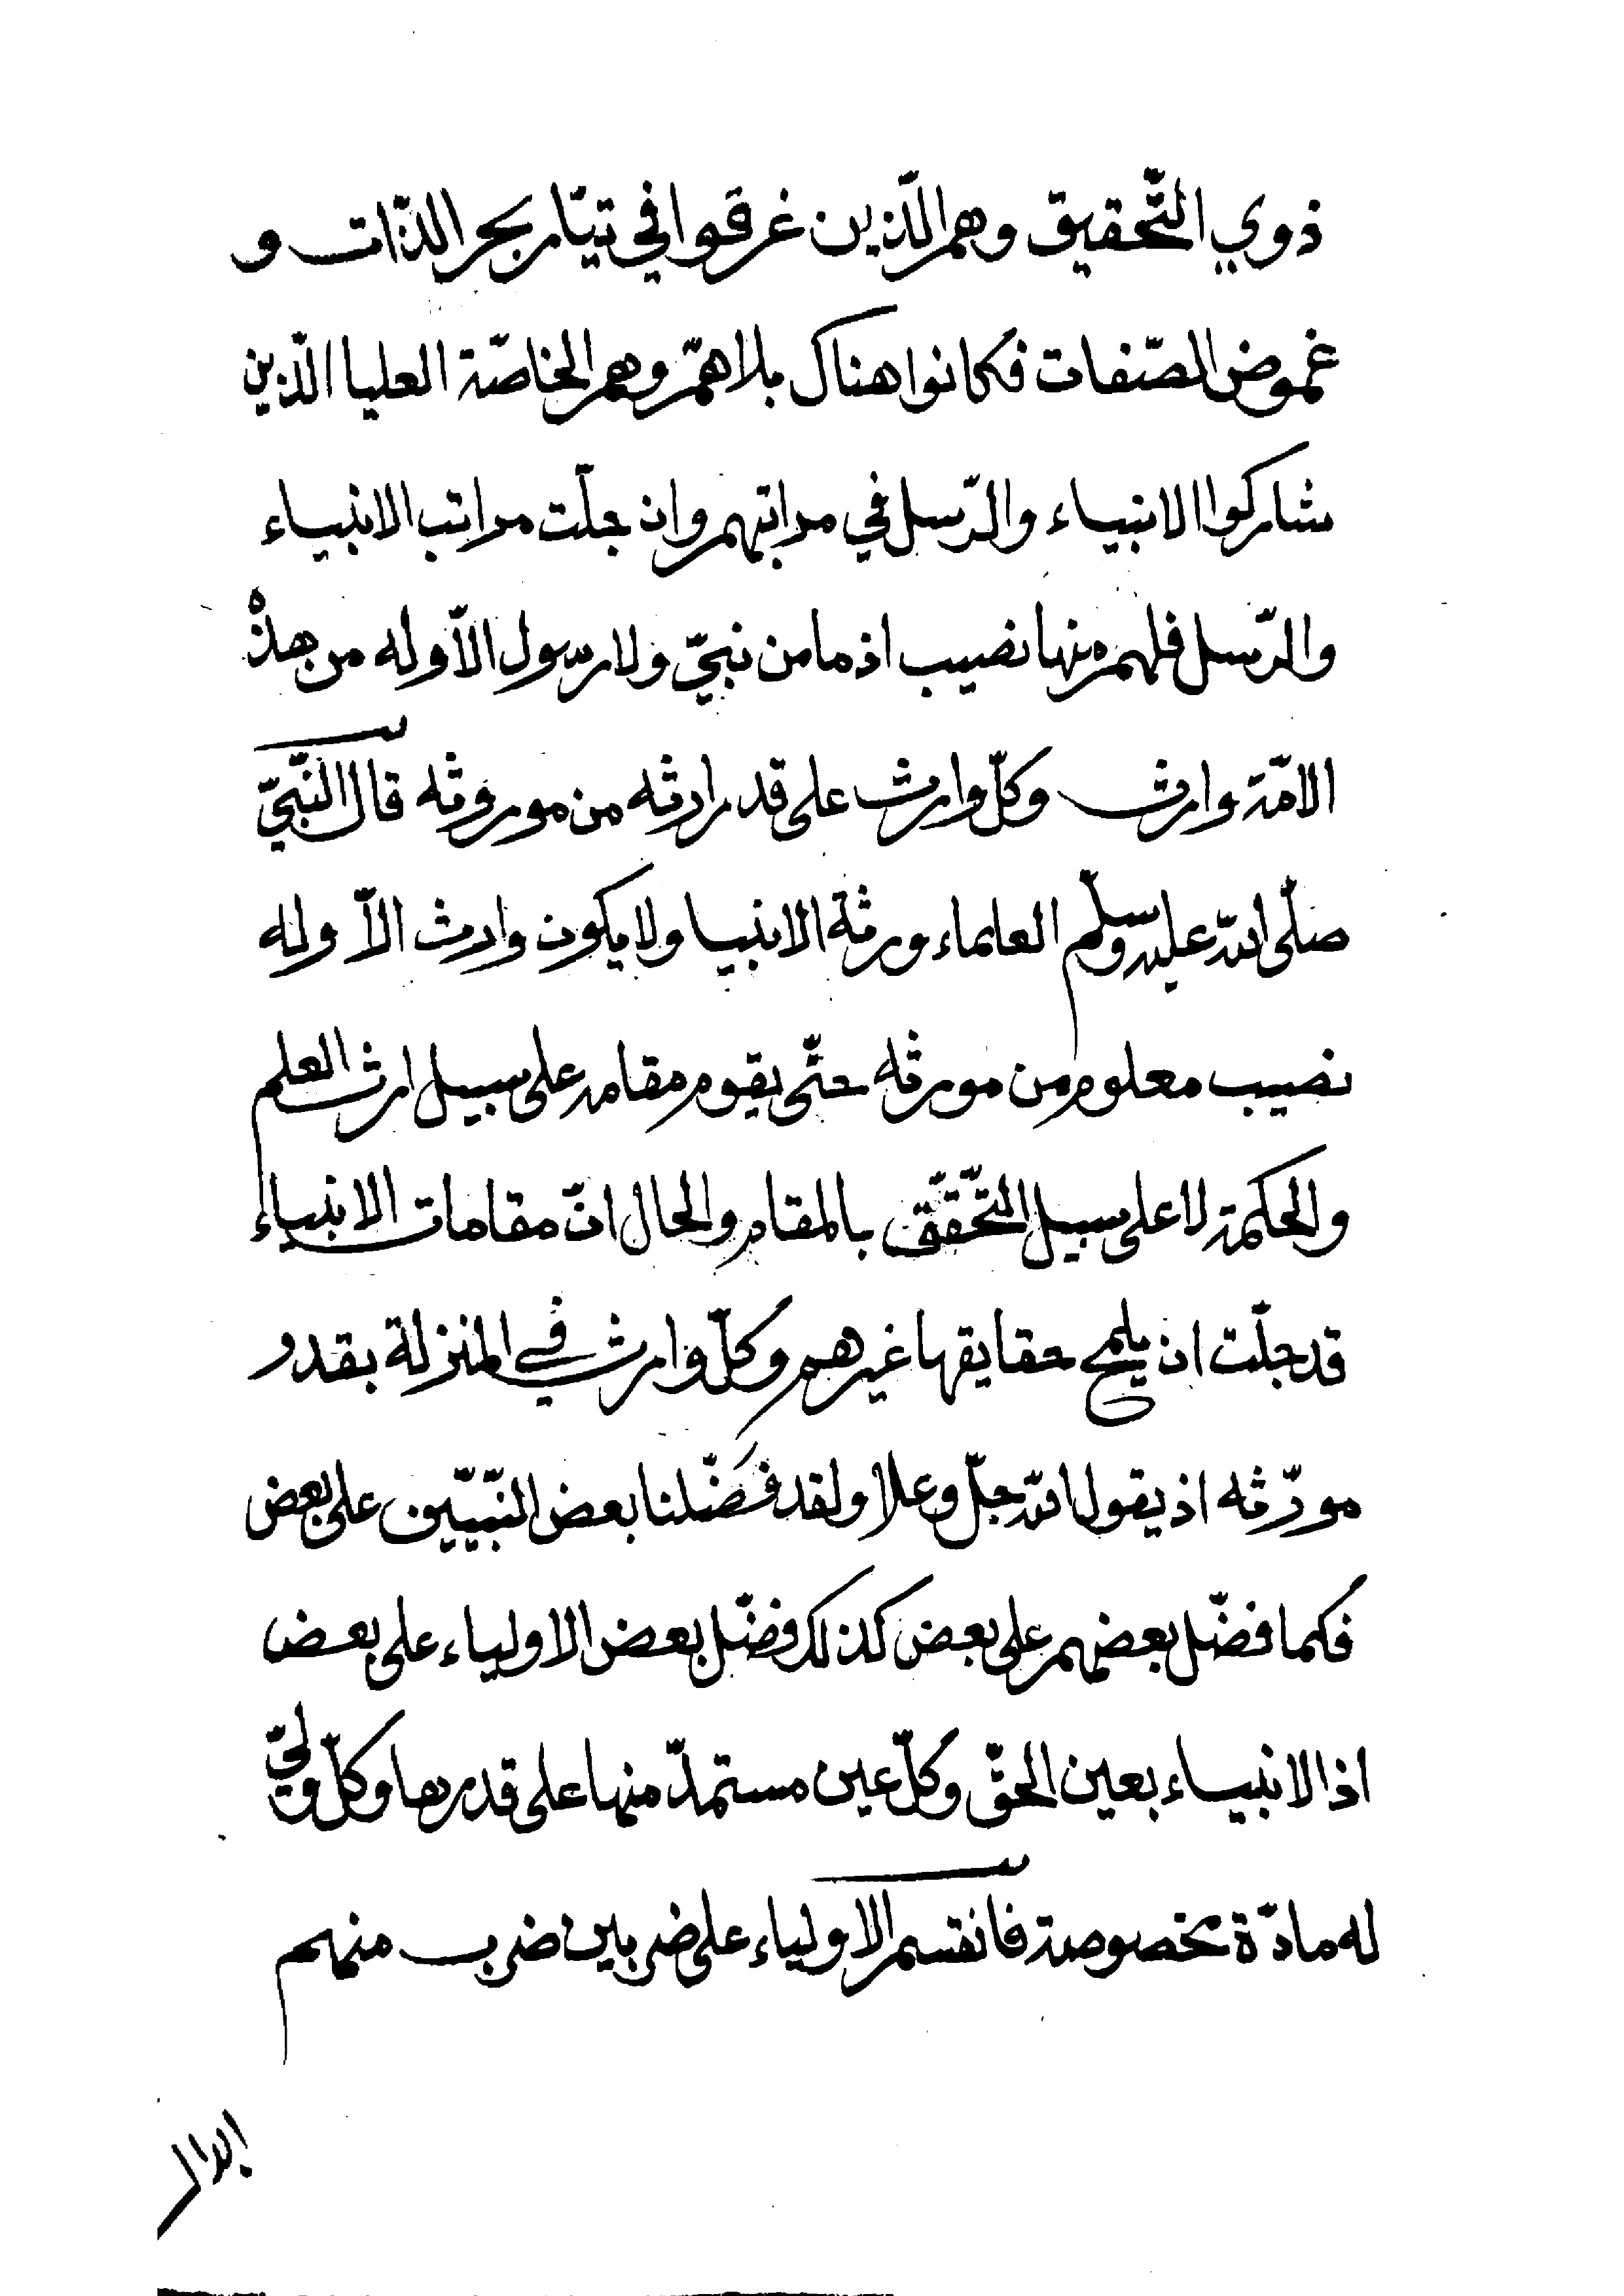 ذوي التّحقيق وهم الّذين غرقوا في تيّار بحر الذّات و
غموض الصّفات فكانوا هناك بلاهمّ وهم الخاصّة العليا الّذين
شاركوا الانبياء والرّسل في مراتبهم وان جلّت مراتب الانبياء
والرّسل فلهم منها نصيب اذ ما من نبيّ ولا رسول الاّ وله من هذه
الامّة وارث وكلّ وارث على قدر ارثه من موروثه قال النّبيّ
صلّى الله عليه وسلّم العلماء ورثة الانبيا ولا يكون وارث الاّ وله
نصيب معلوم من مورثه حتّى يقوم مقامه على سبيل ارث العلم
والحكمة لا على سبيل التّحقّق بالمقام والحال انّ مقامات الانبياء
قد جلّت ان يلمح حقايقها غيرهم وكلّ وارث في المنزلة بقدر
مورّثه اذ يقول الله جلّ وعلا ولقد فضّلنا بعض النّبيّين على بعض
فكما فضّل بعضهم على بعض كذلك فضّل بعض الاولياء على بعض
اذ الانبياء بعين الحقّ وكلّ عين مستمدّ منها على قدرها وكلّ وليّ
له مادّة مخصوصة فانقسم الاولياء على ضربين ضرب منهم
ابدال